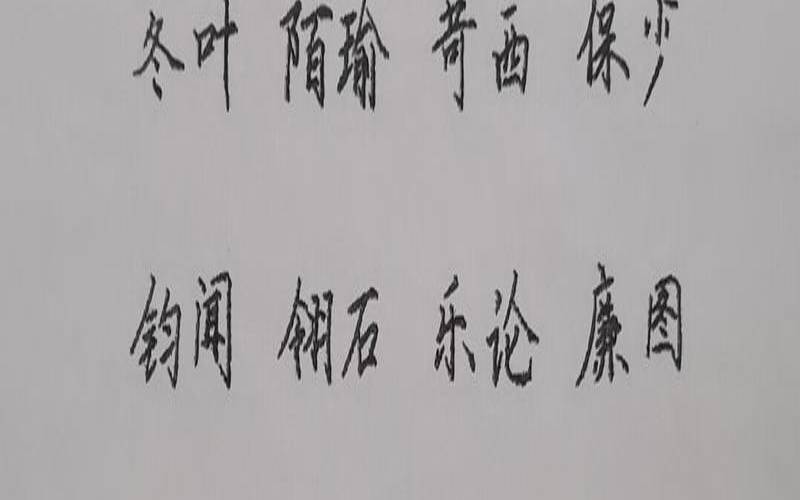 冬叶 陌瑜 西 保少
钧闻 翎石 乐论 廉图